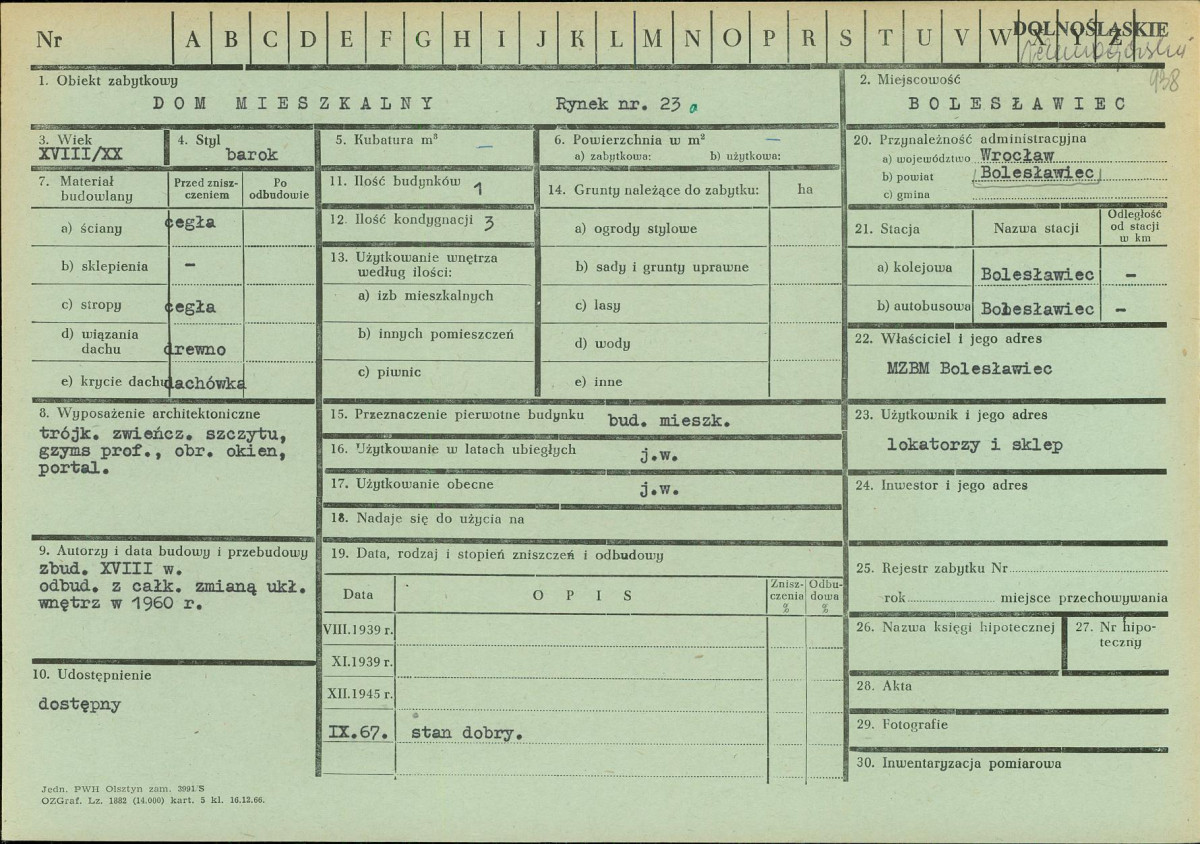 Nr A B C D E F G H I J K L M N O P R S T U V W X Y Z
DOLNOŚLĄSKIE
938
1. Obiekt zabytkowy
DOM MIESZKALNY Rynek nr. 23
2. Miejscowość
BOLESŁAWIEC
3. Wiek
XVIII/XX
4. Styl
barok
5. Kubatura m³ —
6. Powierzchnia w m² —
a) zabytkowa: b) użytkowa:
7. Materiał budowlany
Przed zniszczeniem
Po odbudowie
a) ściany cegła
b) sklepienia –
c) stropy cegła
d) wiązania dachu drewno
e) krycie dachu dachówka
8. Wyposażenie architektoniczne
trójk. zwieńcz. szczytu,
gzyms prof., obr. okien,
portal.
9. Autorzy i data budowy i przebudowy
zbud. XVIII w.
odbud. z całk. zmianą ukł.
wnętrz w 1960 r.
10. Udostępnienie
dostępny
11. Ilość budynków 1
12. Ilość kondygnacji 3
13. Użytkowanie wnętrza
według ilości:
a) izb mieszkalnych
b) innych pomieszczeń
c) piwnic
14. Grunty należące do zabytku: ha
a) ogrody stylowe
b) sady i grunty uprawne
c) lasy
d) wody
e) inne
15. Przeznaczenie pierwotne budynku bud. mieszk.
16. Użytkowanie w latach ubiegłych j.w.
17. Użytkowanie obecne j.w.
18. Nadaje się do użycia na
19. Data, rodzaj i stopień zniszczeń i odbudowy
Data OPIS Zniszczenia % Odbudowa %
VIII.1939 r.
XI.1939 r.
XII.1945 r.
IX.67. stan dobry.
20. Przynależność administracyjna
a) województwo Wrocław
b) powiat Bolesławiec
c) gmina
21. Stacja Nazwa stacji Odległość od stacji w km
a) kolejowa Bolesławiec –
b) autobusowa Bolesławiec –
22. Właściciel i jego adres
MZBM Bolesławiec
23. Użytkownik i jego adres
lokatorzy i sklep
24. Inwestor i jego adres
25. Rejestr zabytku Nr
rok miejsce przechowywania
26. Nazwa księgi hipotecznej
27. Nr hipoteczny
28. Akta
29. Fotografie
30. Inwentaryzacja pomiarowa
Jedn. PWH Olsztyn zam. 3991/S
OZGraf. Lz. 1882 (14.000) kart. 5 kl. 16.12.66.